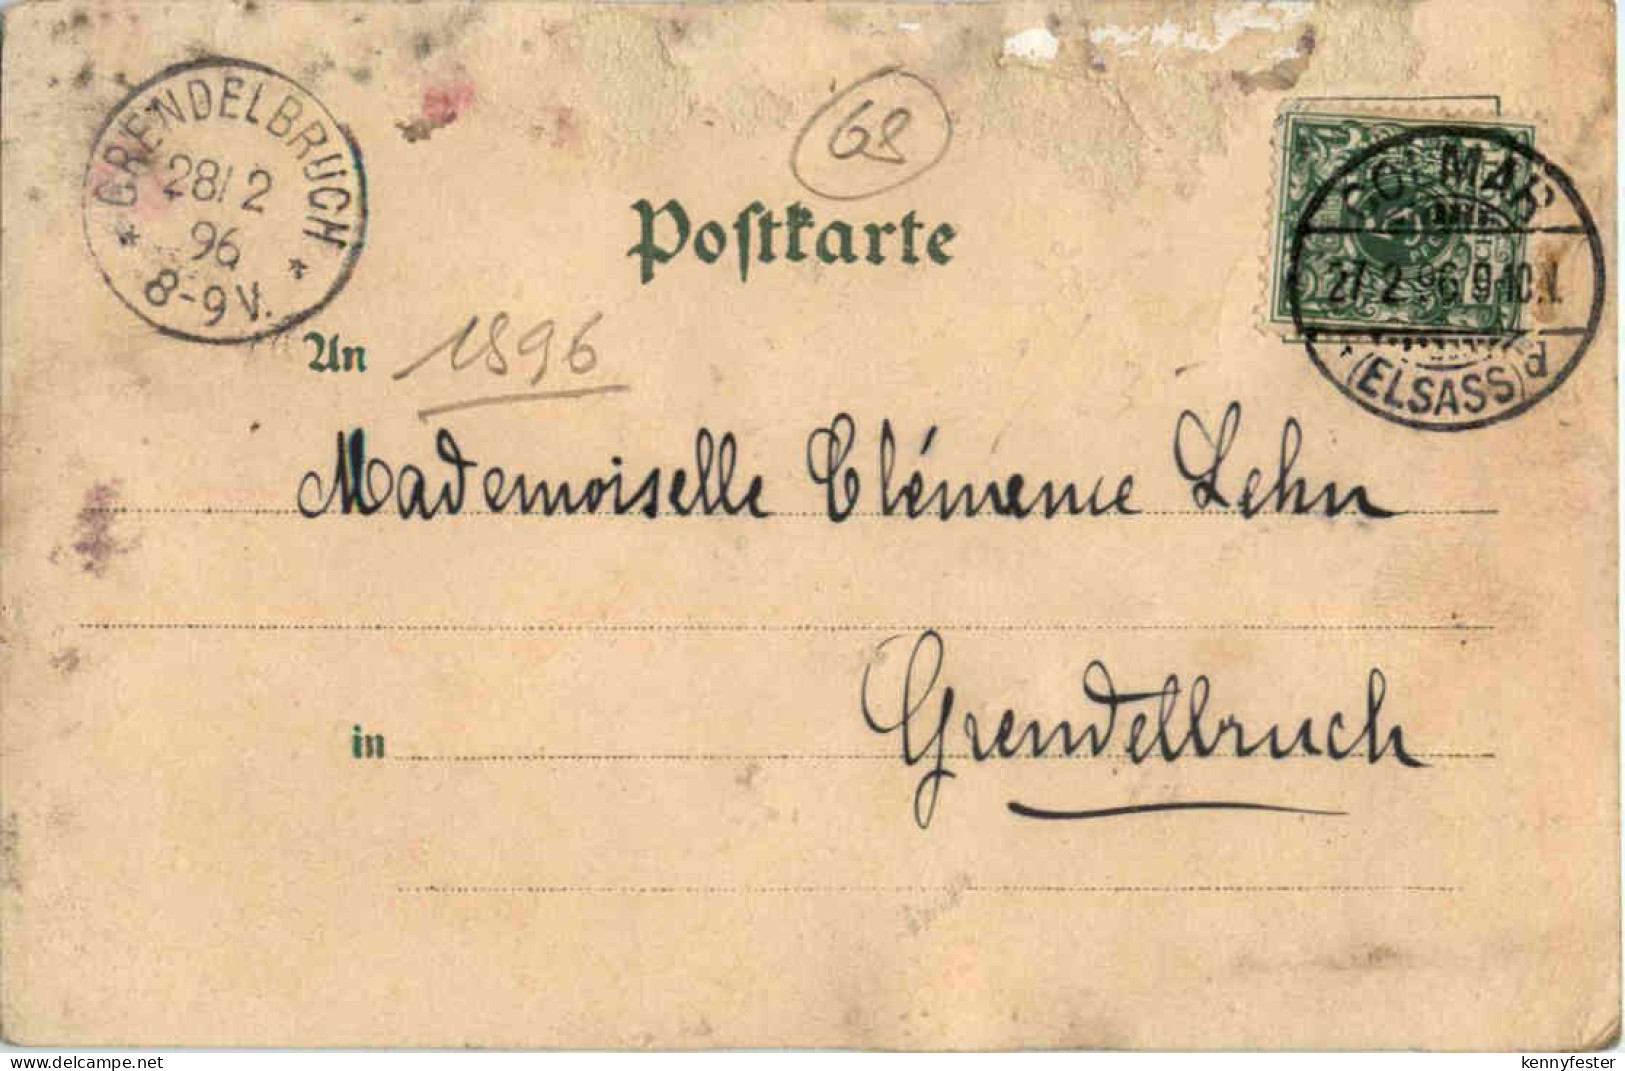 GRENDELBRUCH
28/2
96
8-9V.
68
COLMAR
27 2 96 9-10
(ELSASS) d
Postkarte
An
1896
Mademoiselle Clémence Lehn
in
Grendelbruch
www.delcampe.net
kennyfester